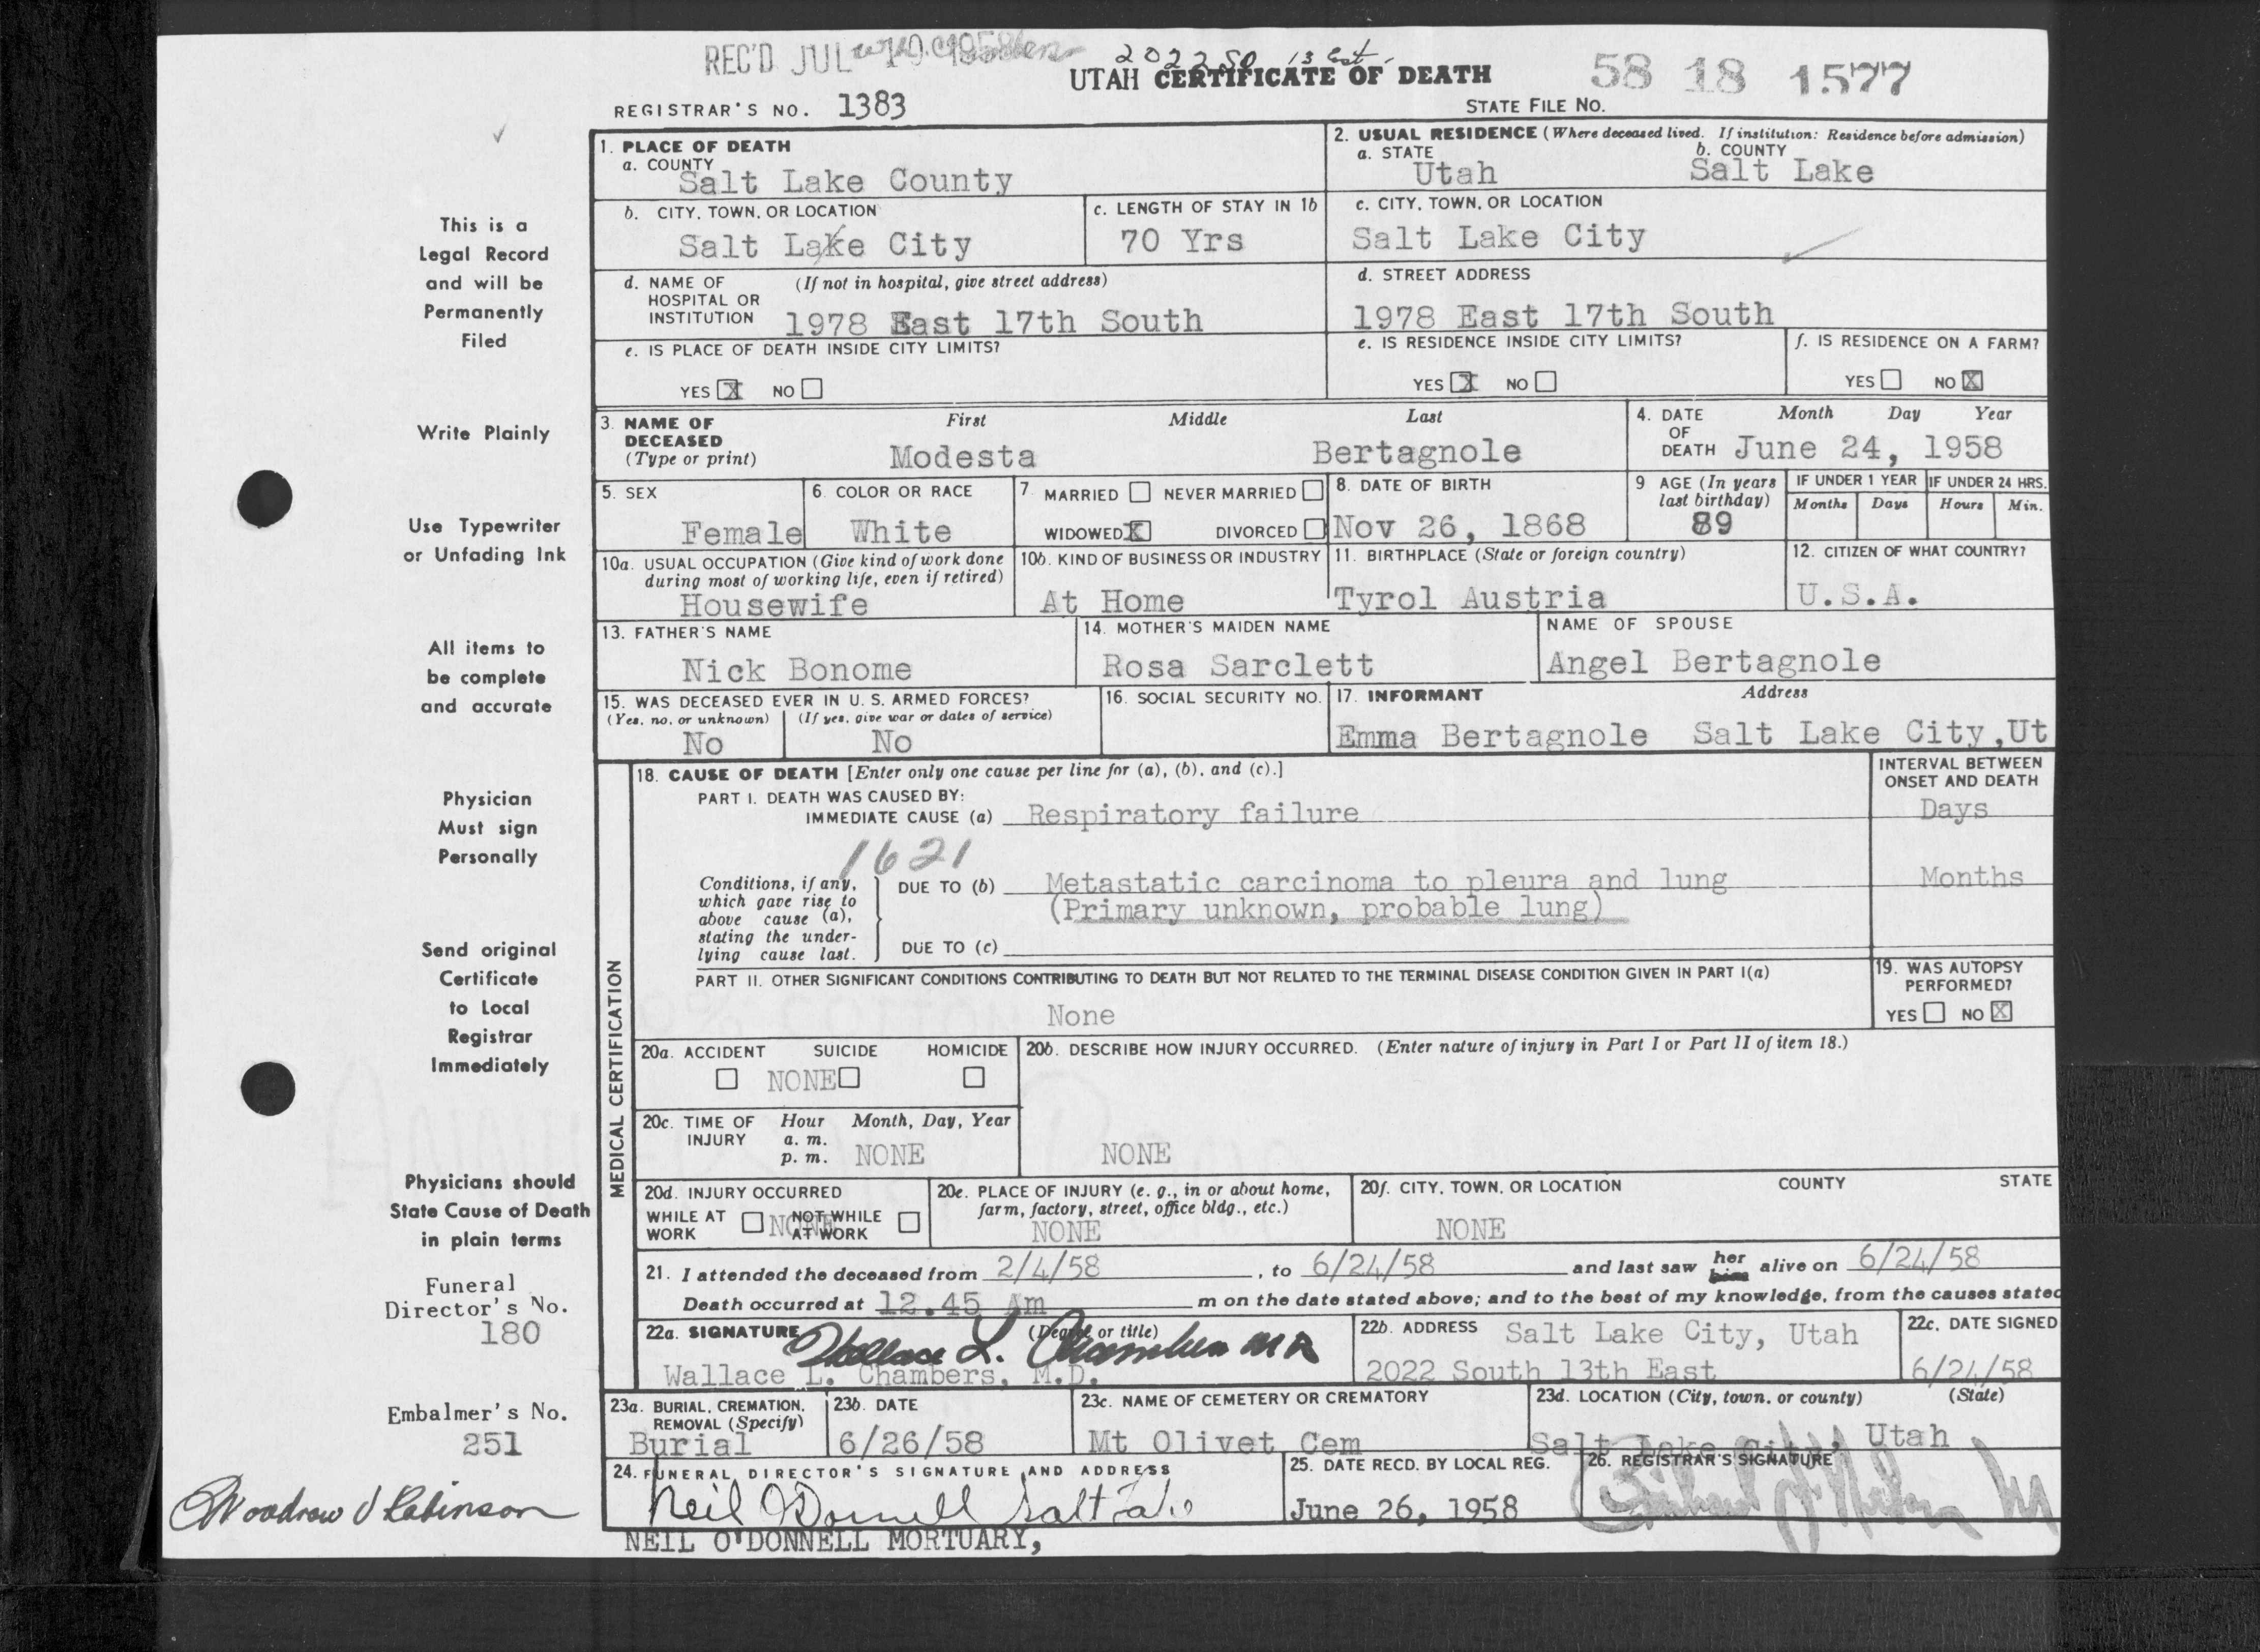 REC'D JUL 10 1958
2022 SO 13 East
UTAH CERTIFICATE OF DEATH
58 18 1577
REGISTRAR'S NO. 1383
STATE FILE NO.
1. PLACE OF DEATH
a. COUNTY
Salt Lake County
2. USUAL RESIDENCE (Where deceased lived. If institution: Residence before admission)
a. STATE b. COUNTY
Utah Salt Lake
b. CITY, TOWN, OR LOCATION
Salt Lake City
c. LENGTH OF STAY IN 1b
70 Yrs
c. CITY, TOWN, OR LOCATION
Salt Lake City
d. NAME OF (If not in hospital, give street address)
HOSPITAL OR
INSTITUTION 1978 East 17th South
d. STREET ADDRESS
1978 East 17th South
e. IS PLACE OF DEATH INSIDE CITY LIMITS?
YES X NO
e. IS RESIDENCE INSIDE CITY LIMITS?
YES X NO
f. IS RESIDENCE ON A FARM?
YES NO X
3. NAME OF First Middle Last
DECEASED
(Type or print) Modesta Bertagnole
4. DATE Month Day Year
OF
DEATH June 24, 1958
5. SEX
Female
6. COLOR OR RACE
White
7. MARRIED NEVER MARRIED
WIDOWED X DIVORCED
8. DATE OF BIRTH
Nov 26, 1868
9 AGE (In years
last birthday)
89
IF UNDER 1 YEAR
Months Days
IF UNDER 24 HRS.
Hours Min.
10a. USUAL OCCUPATION (Give kind of work done
during most of working life, even if retired)
Housewife
10b. KIND OF BUSINESS OR INDUSTRY
At Home
11. BIRTHPLACE (State or foreign country)
Tyrol Austria
12. CITIZEN OF WHAT COUNTRY?
U.S.A.
13. FATHER'S NAME
Nick Bonome
14. MOTHER'S MAIDEN NAME
Rosa Sarclett
NAME OF SPOUSE
Angel Bertagnole
15. WAS DECEASED EVER IN U. S. ARMED FORCES?
(Yes, no, or unknown) (If yes, give war or dates of service)
No No
16. SOCIAL SECURITY NO.
17. INFORMANT Address
Emma Bertagnole Salt Lake City,Ut
MEDICAL CERTIFICATION
18. CAUSE OF DEATH [Enter only one cause per line for (a), (b), and (c).]
INTERVAL BETWEEN
ONSET AND DEATH
PART I. DEATH WAS CAUSED BY:
IMMEDIATE CAUSE (a) Respiratory failure Days
1621
Conditions, if any,
which gave rise to
above cause (a),
stating the under-
lying cause last.
DUE TO (b) Metastatic carcinoma to pleura and lung Months
(Primary unknown, probable lung)
DUE TO (c)
PART II. OTHER SIGNIFICANT CONDITIONS CONTRIBUTING TO DEATH BUT NOT RELATED TO THE TERMINAL DISEASE CONDITION GIVEN IN PART I(a)
None
19. WAS AUTOPSY
PERFORMED?
YES NO X
20a. ACCIDENT SUICIDE HOMICIDE
NONE
20b. DESCRIBE HOW INJURY OCCURRED. (Enter nature of injury in Part I or Part II of item 18.)
NONE
20c. TIME OF Hour Month, Day, Year
INJURY a. m.
p. m. NONE
20d. INJURY OCCURRED
WHILE AT NOT WHILE
WORK NONE AT WORK
20e. PLACE OF INJURY (e. g., in or about home,
farm, factory, street, office bldg., etc.)
NONE
20f. CITY, TOWN, OR LOCATION COUNTY STATE
NONE
21. I attended the deceased from 2/4/58, to 6/24/58 and last saw her him alive on 6/24/58
Death occurred at 12.45 Am m on the date stated above; and to the best of my knowledge, from the causes stated
22a. SIGNATURE (Degree or title)
Wallace L. Chambers MD
Wallace L. Chambers, M.D.
22b. ADDRESS Salt Lake City, Utah
2022 South 13th East
22c. DATE SIGNED
6/24/58
23a. BURIAL, CREMATION,
REMOVAL (Specify)
Burial
23b. DATE
6/26/58
23c. NAME OF CEMETERY OR CREMATORY
Mt Olivet Cem
23d. LOCATION (City, town, or county) (State)
Salt Lake City, Utah
24. FUNERAL DIRECTOR'S SIGNATURE AND ADDRESS
Neil O'Donnell Salt Lake
NEIL O'DONNELL MORTUARY,
25. DATE RECD. BY LOCAL REG.
June 26, 1958
26. REGISTRAR'S SIGNATURE
This is a
Legal Record
and will be
Permanently
Filed
Write Plainly
Use Typewriter
or Unfading Ink
All items to
be complete
and accurate
Physician
Must sign
Personally
Send original
Certificate
to Local
Registrar
Immediately
Physicians should
State Cause of Death
in plain terms
Funeral
Director's No.
180
Embalmer's No.
251
Woodrow J Robinson